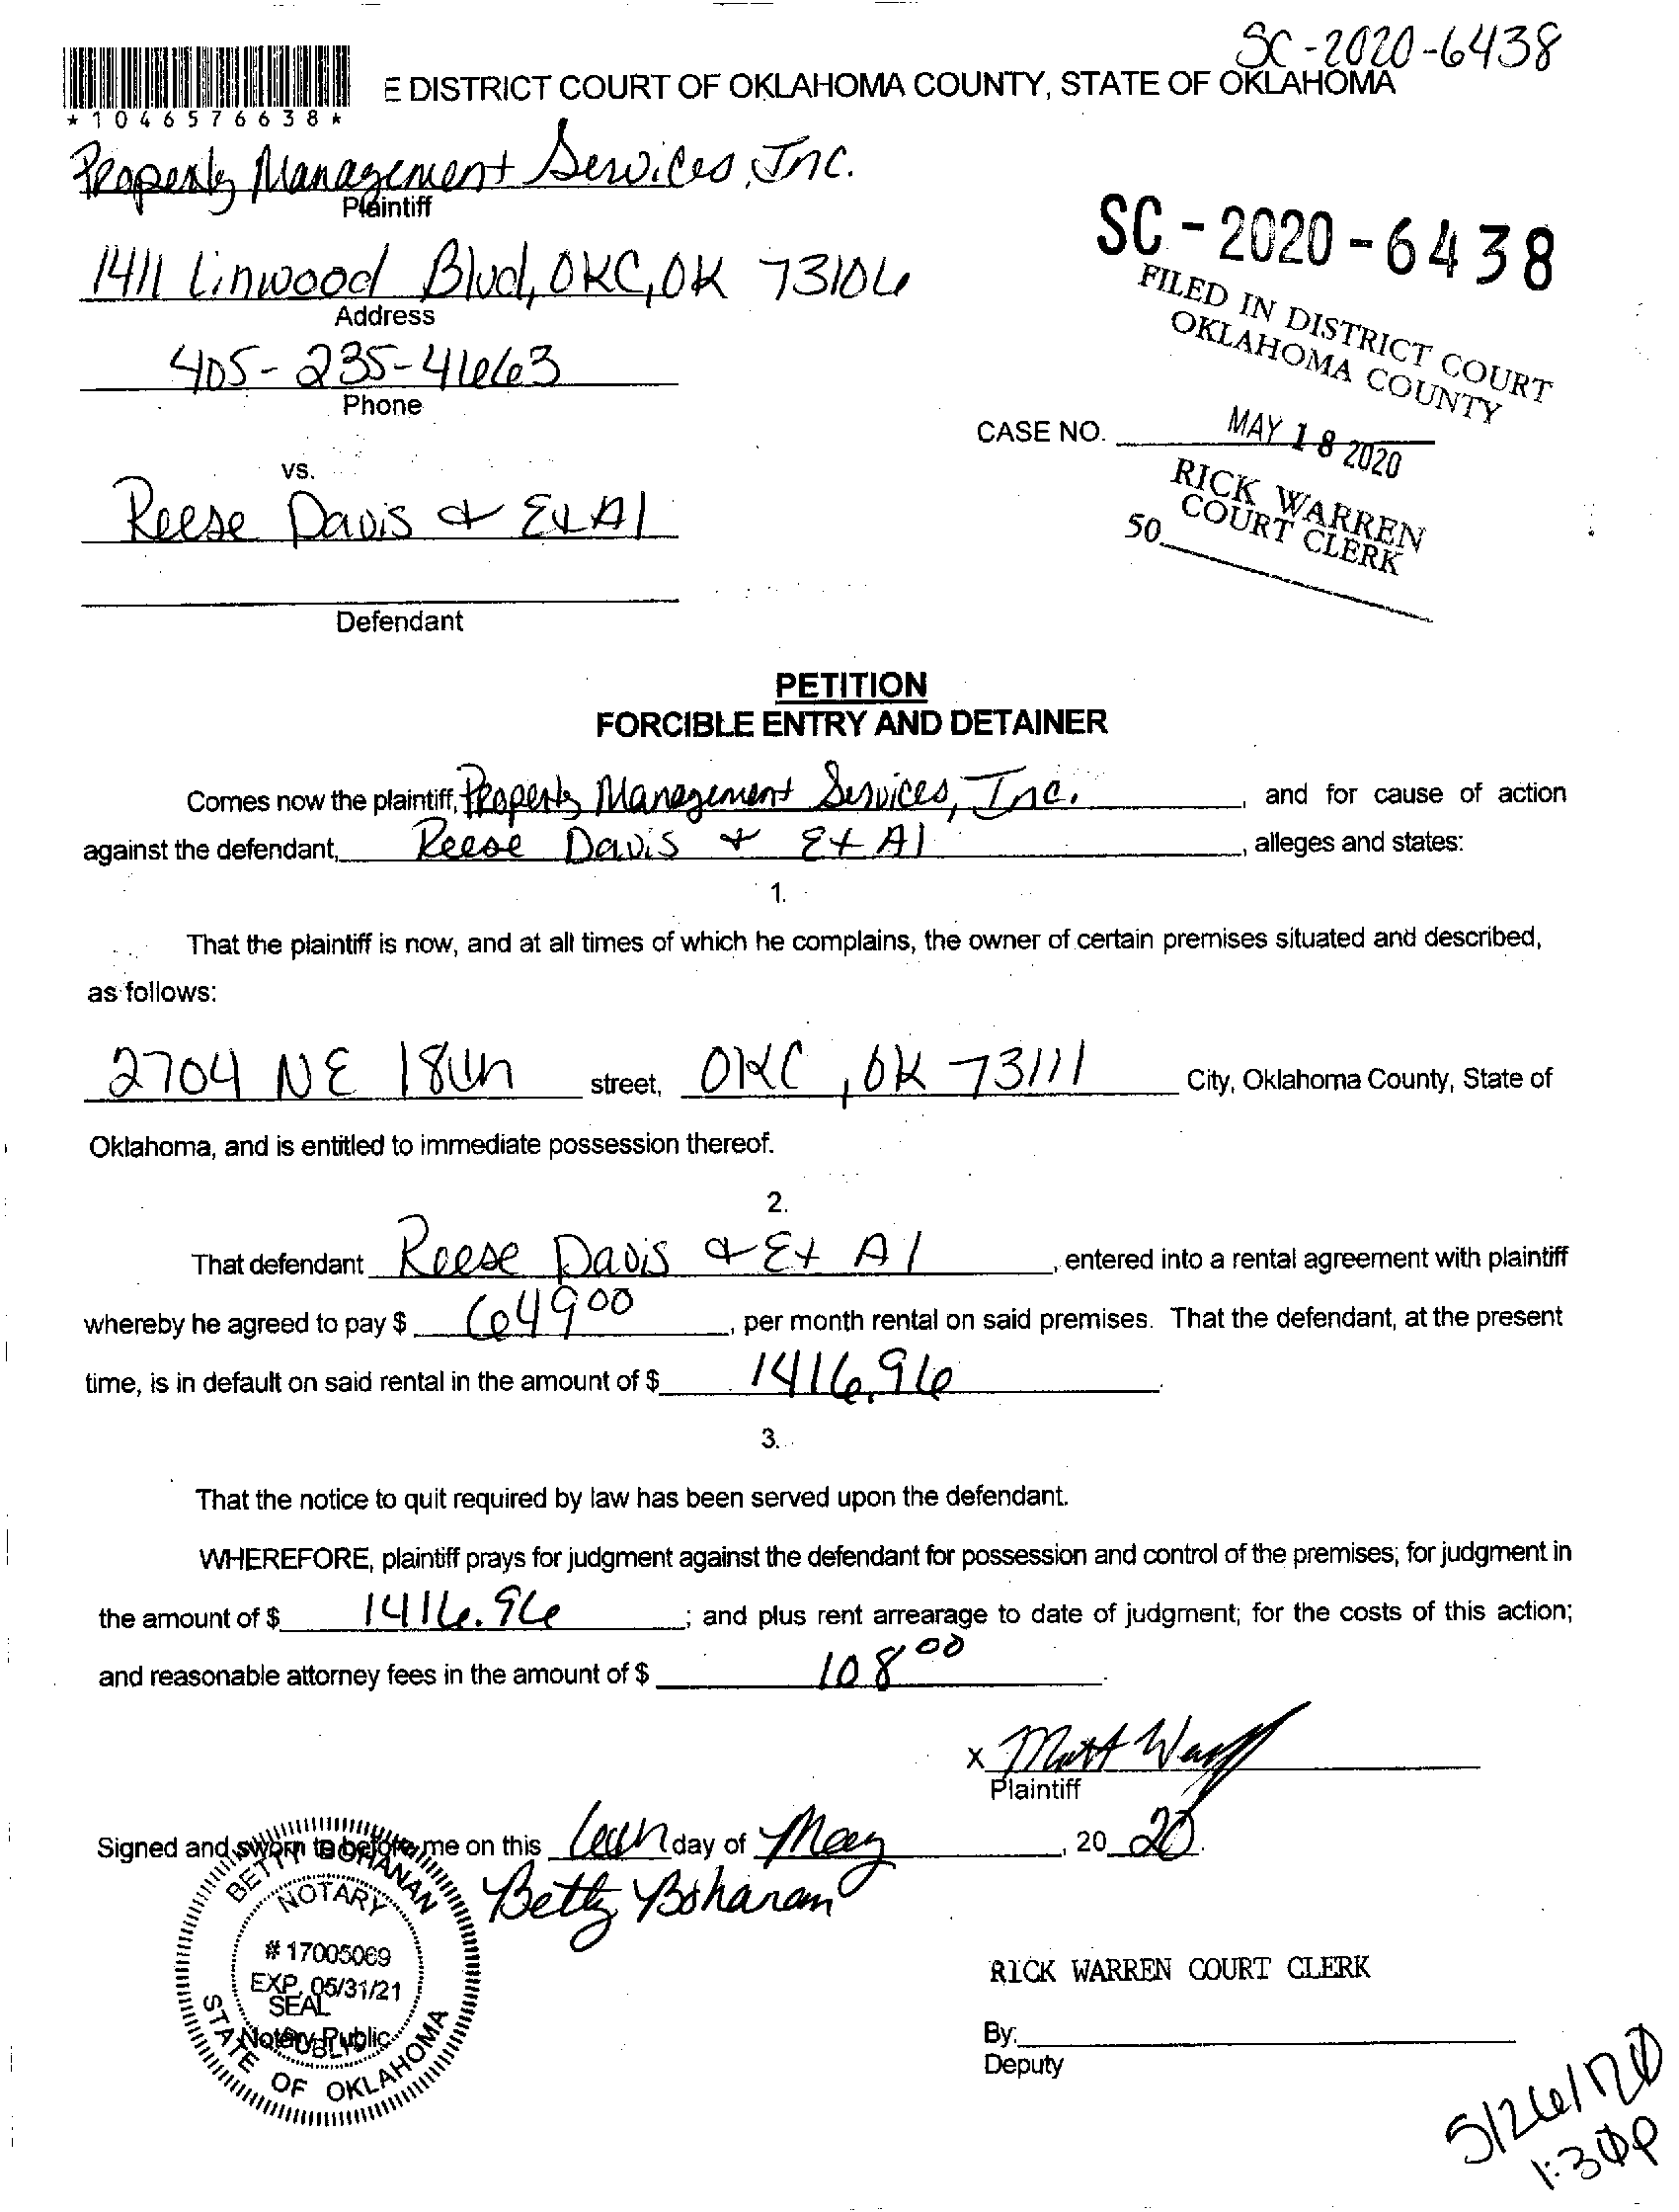 SC-2020-6438
E DISTRICT COURT OF OKLAHOMA COUNTY, STATE OF OKLAHOMA
*1046576638*
Property Management Services, Inc.
Plaintiff
SC-2020-6438
1411 Linwood Blvd, OKC, OK 73106
Address
FILED IN DISTRICT COURT
OKLAHOMA COUNTY
405-235-4663
Phone
CASE NO.
MAY 18 2020
vs.
RICK WARREN
COURT CLERK
Reese Davis & Et Al
50
Defendant
PETITION
FORCIBLE ENTRY AND DETAINER
Comes now the plaintiff, Property Management Services, Inc. , and for cause of action
against the defendant, Reese Davis & Et Al , alleges and states:
1.
That the plaintiff is now, and at all times of which he complains, the owner of certain premises situated and described,
as follows:
2704 NE 18th street, OKC, OK 73111 City, Oklahoma County, State of
Oklahoma, and is entitled to immediate possession thereof.
2.
That defendant Reese Davis & Et Al , entered into a rental agreement with plaintiff
whereby he agreed to pay $ 649 00 , per month rental on said premises. That the defendant, at the present
time, is in default on said rental in the amount of $ 1416.96 .
3.
That the notice to quit required by law has been served upon the defendant.
WHEREFORE, plaintiff prays for judgment against the defendant for possession and control of the premises; for judgment in
the amount of $ 1416.96 ; and plus rent arrearage to date of judgment; for the costs of this action;
and reasonable attorney fees in the amount of $ 108 00 .
x Matt
Plaintiff
Signed and sworn to before me on this day of May , 20 20.
Betty Bohanan
BETTY BOHANAN
NOTARY
# 17005069
EXP. 05/31/21
SEAL
Notary Public
PUBLIC
STATE OF OKLAHOMA
RICK WARREN COURT CLERK
By:
Deputy
5/26/20
1:30p